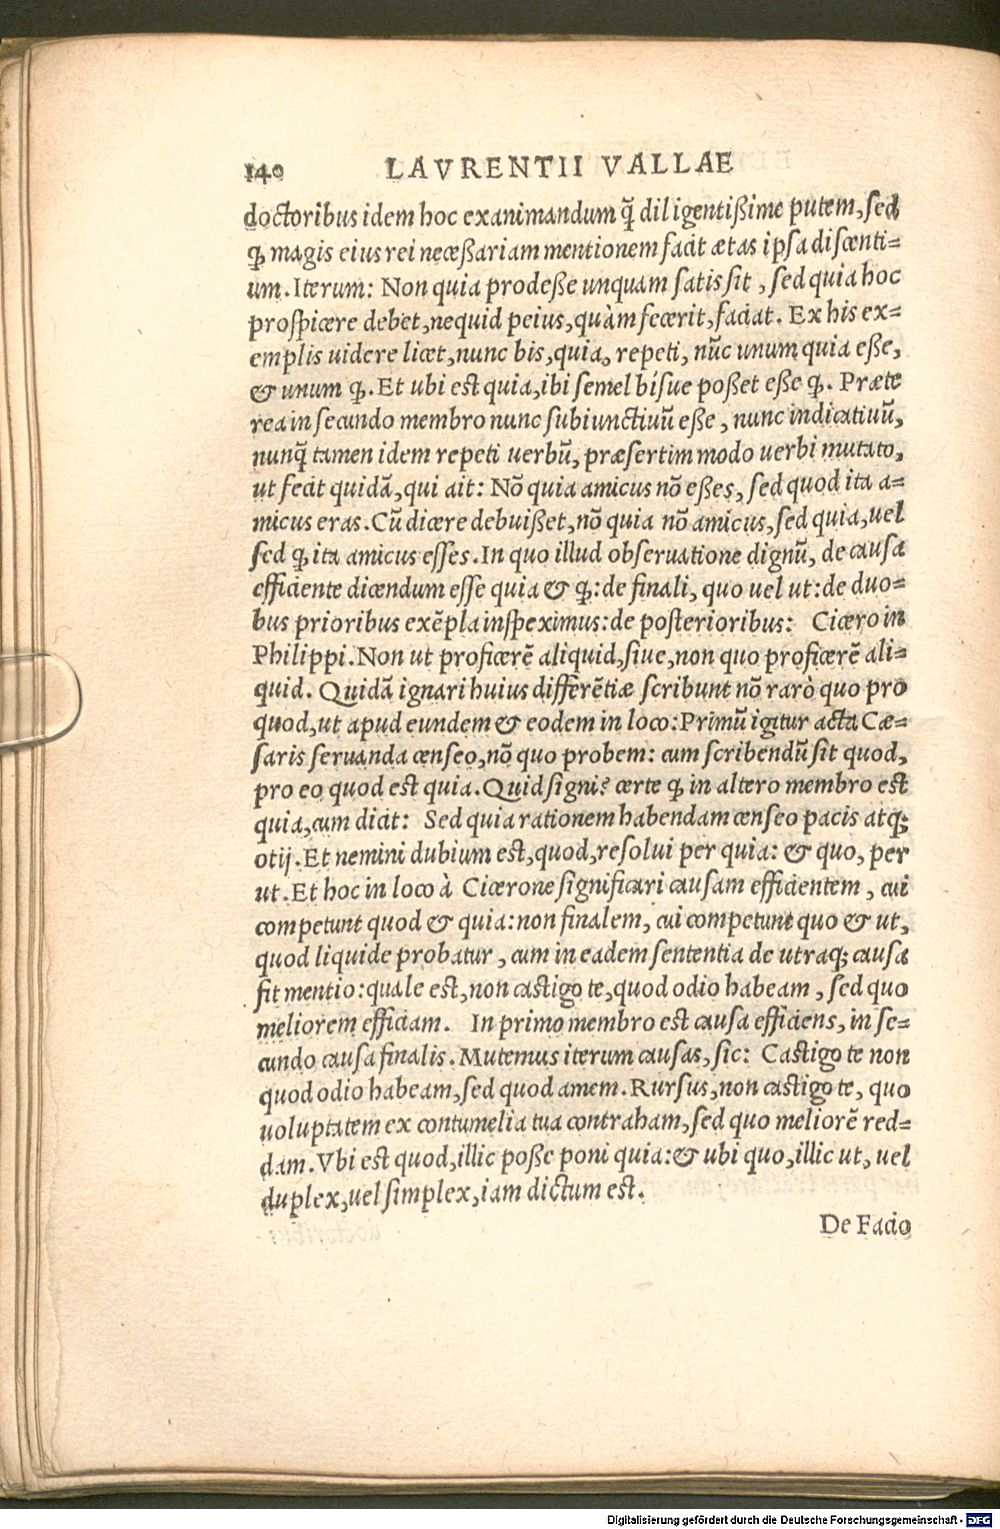 140 LAVRENTII VALLAE
doctoribus idem hoc examinandum q̃ diligentißime putem, sed
ꝙ magis eius rei neceßariam mentionem facit ætas ipsa discenti=
um. Iterum: Non quia prodeße unquam satis sit, sed quia hoc
prospicere debet, nequid peius, quàm fecerit, faciat. Ex his ex=
emplis uidere licet, nunc bis, quia, repeti, nũc unum quia eße,
& unum ꝙ. Et ubi est quia, ibi semel bísue poßet eße ꝙ. Præte
rea in secundo membro nunc subiunctiuũ eße, nunc indicatiuũ,
nunq̃ tamen idem repeti uerbũ, præsertim modo uerbi mutato,
ut fecit quidã, qui ait: Nõ quia amicus nõ eßes, sed quod ita a=
micus eras. Cũ dicere debuißet, nõ quia nõ amicus, sed quia, uel
sed ꝙ ita amicus esses. In quo illud obseruatione dignũ, de causa
efficiente dicendum esse quia & ꝙ: de finali, quo uel ut: de duo=
bus prioribus exẽpla inspeximus: de posterioribus: Cicero in
Philippi. Non ut proficerẽ aliquid, siue, non quo proficerẽ ali=
quid. Quidã ignari huius differẽtiæ scribunt nõ rarò quo pro
quod, ut apud eundem & eodem in loco: Primũ igitur acta Cæ=
saris seruanda censeo, nõ quo probem: cum scribendũ sit quod,
pro eo quod est quia. Quid signi? certe ꝙ in altero membro est
quia, cum dicit: Sed quia rationem habendam censeo pacis atq;
otij. Et nemini dubium est, quod, resolui per quia: & quo, per
ut. Et hoc in loco à Cicerone significari causam efficientem, cui
competunt quod & quia: non finalem, cui competunt quo & ut,
quod liquide probatur, cum in eadem sententia de utraq; causa
fit mentio: quale est, non castigo te, quod odio habeam, sed quo
meliorem efficiam. In primo membro est causa efficiens, in se=
cundo causa finalis. Mutemus iterum causas, sic: Castigo te non
quod odio habeam, sed quod amem. Rursus, non castigo te, quo
uoluptatem ex contumelia tua contraham, sed quo meliorẽ red=
dam. Vbi est quod, illic poße poni quia: & ubi quo, illic ut, uel
duplex, uel simplex, iam dictum est.
De Facio
Digitalisierung gefördert durch die Deutsche Forschungsgemeinschaft - DFG